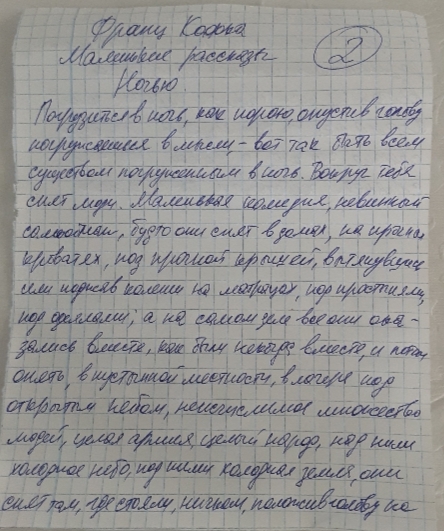 Франц Кафка
2
Маленькие рассказы
Ночью.
Погрузиться в ночь, как порою, опустив голову,
погружаешься в мысли, – вот так быть всем
существом погруженным в ночь. Вокруг тебя
спят люди. Маленькая комедия, невинный
самообман, будто они спят в домах, на прочных
кроватях, под прочной крышей, вытянувшись
или поджав колени на матрацах, под простынями,
под одеялами; а на самом деле все они ока-
зались вместе, как были некогда вместе, и потом
опять, в пустынной местности, в лагере под
открытым небом, неисчислимое множество
людей, целая армия, целый народ, над ними
холодное небо, под ними холодная земля, они
спят там, где стояли, ничком, положив голову на